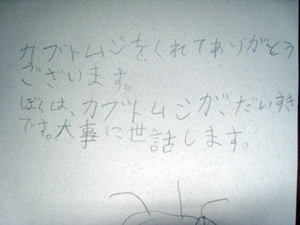 カブトムシをくれてありがとう
ございます。
ぼくは、カブトムシが、だいすき
です。大事に世話します。